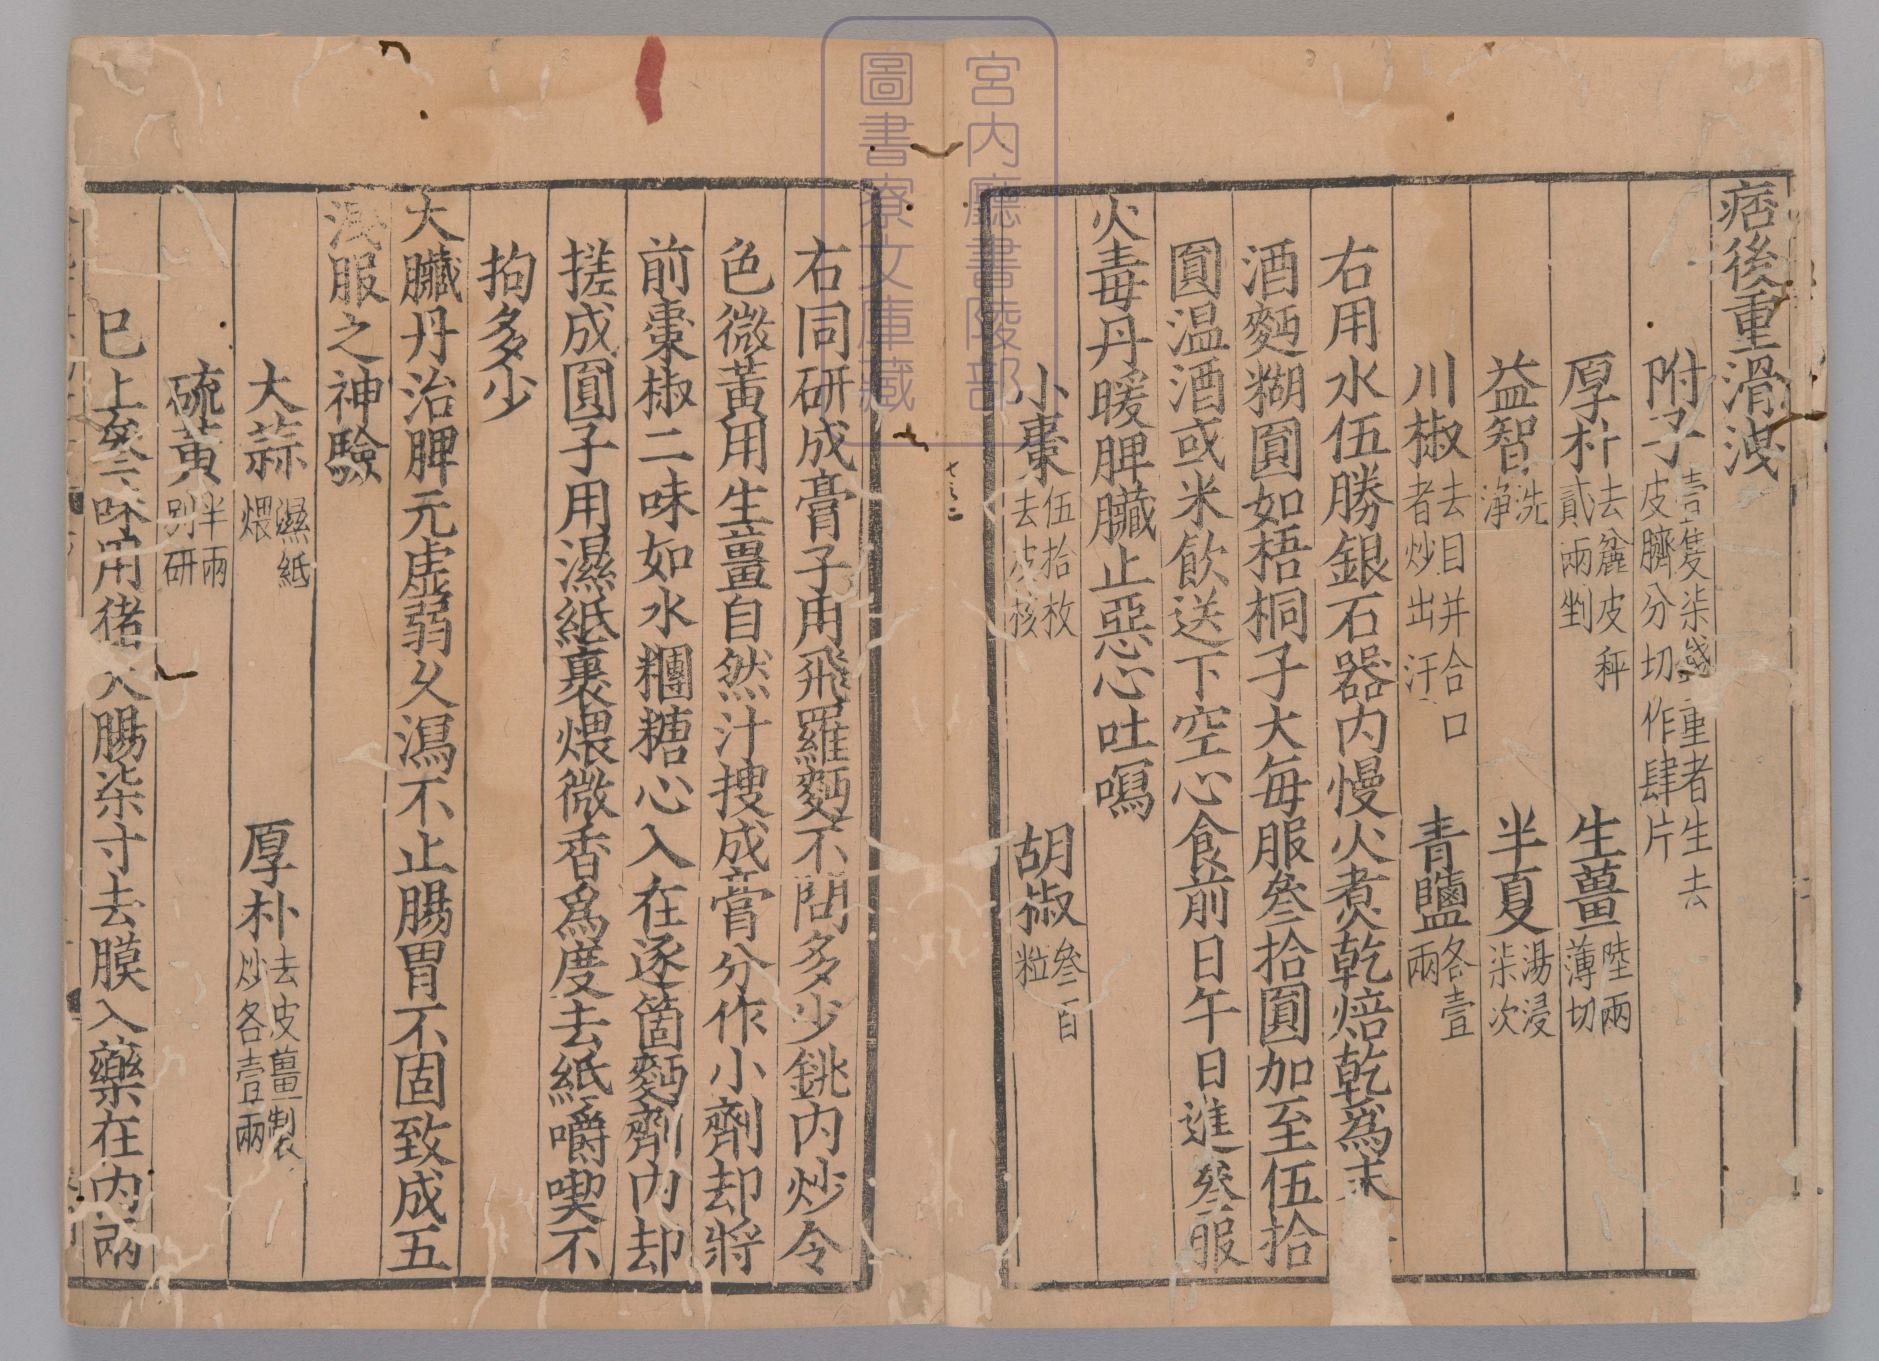 痞後重滑洩
附子壹隻柒錢重者生去皮臍分切作肆片
厚朴去麄皮秤貳兩剉 生薑陸兩薄切
益智洗淨 半夏湯浸柒次
川椒去目并合口者炒出汗 青鹽各壹兩
右用水伍勝銀石器内慢火煮乾焙乾爲末
酒麪糊圓如梧桐子大每服叁拾圓加至伍拾
圓温酒或米飲送下空心食前日午日進叁服
火毒丹暖脾臟止惡心吐㵼
小棗伍拾枚去皮核 胡椒叁百粒
右同研成膏子用飛羅麪不問多少銚内炒令
色微黃用生薑自然汁搜成膏分作小劑却將
前棗椒二味如水糰糖心入在逐箇麪劑内却
搓成圓子用濕紙裹煨微香爲度去紙嚼喫不
拘多少
大臟丹治脾元虛弱久瀉不止腸胃不固致成五
洩服之神驗
大蒜濕紙煨 厚朴去皮薑製炒各壹兩
硫黃半兩別研
已上叁味用猪大腸柒寸去膜入藥在内兩
宮内廳書陵部
圖書寮文庫藏